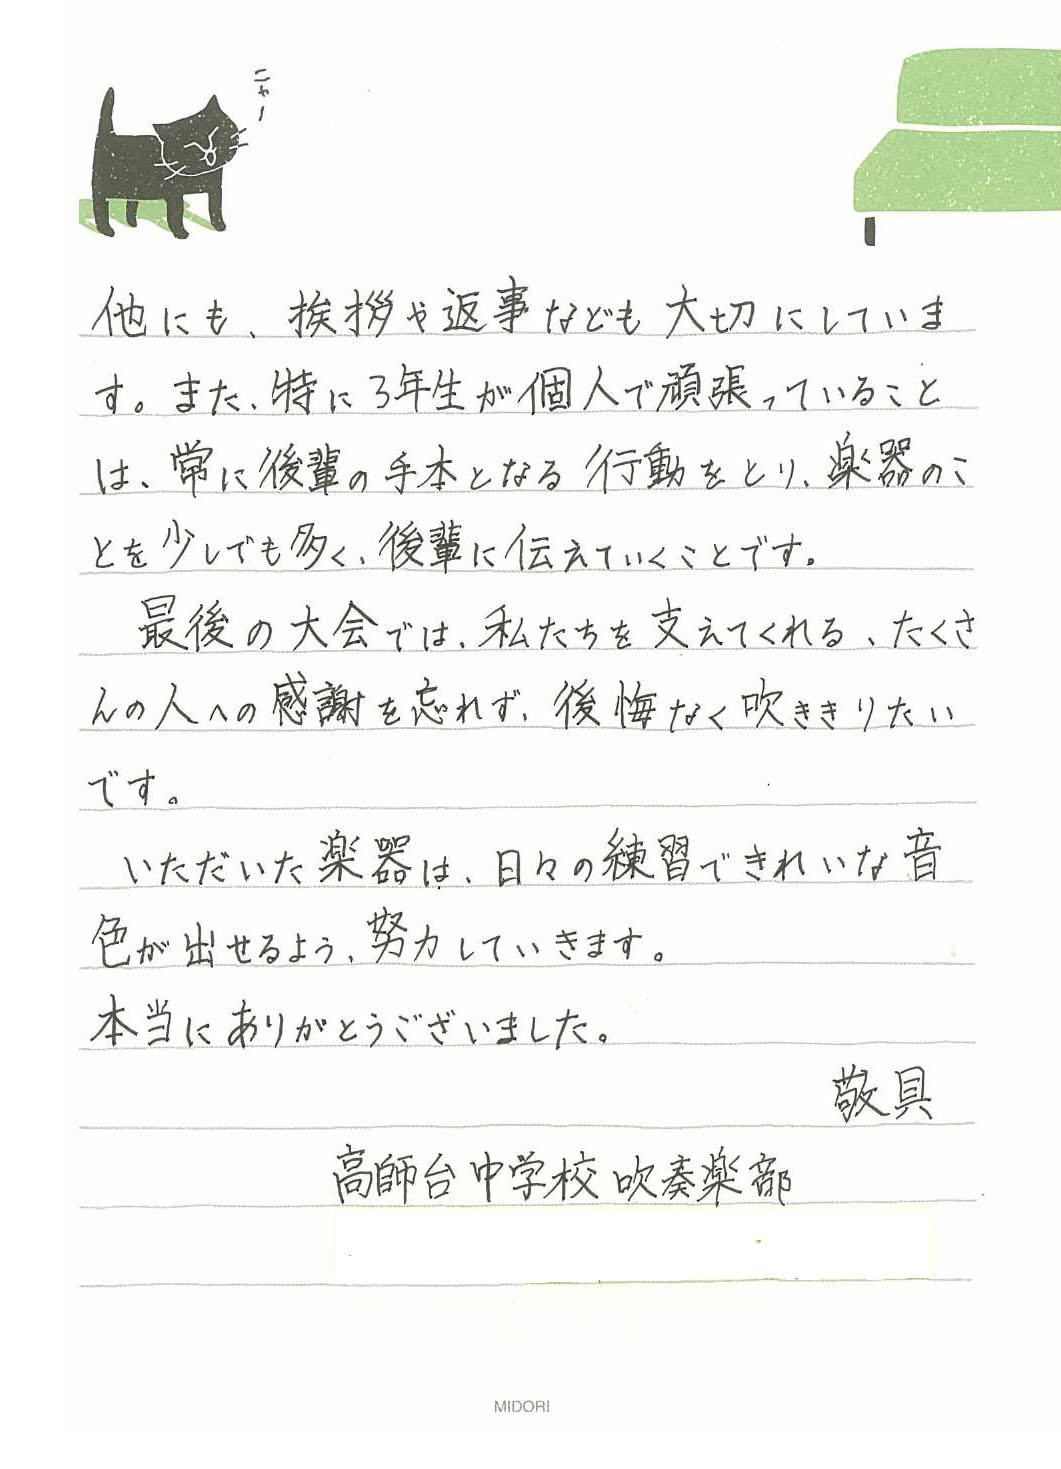 ニャー
他にも、挨拶や返事なども大切にしていま
す。また、特に3年生が個人で頑張っていること
は、常に後輩の手本となる行動をとり、楽器のこ
とを少しでも多く、後輩に伝えていくことです。
最後の大会では、私たちを支えてくれる、たくさ
んの人への感謝を忘れず、後悔なく吹ききりたい
です。
いただいた楽器は、日々の練習できれいな音
色が出せるよう、努力していきます。
本当にありがとうございました。
敬具
高師台中学校 吹奏楽部
MIDORI